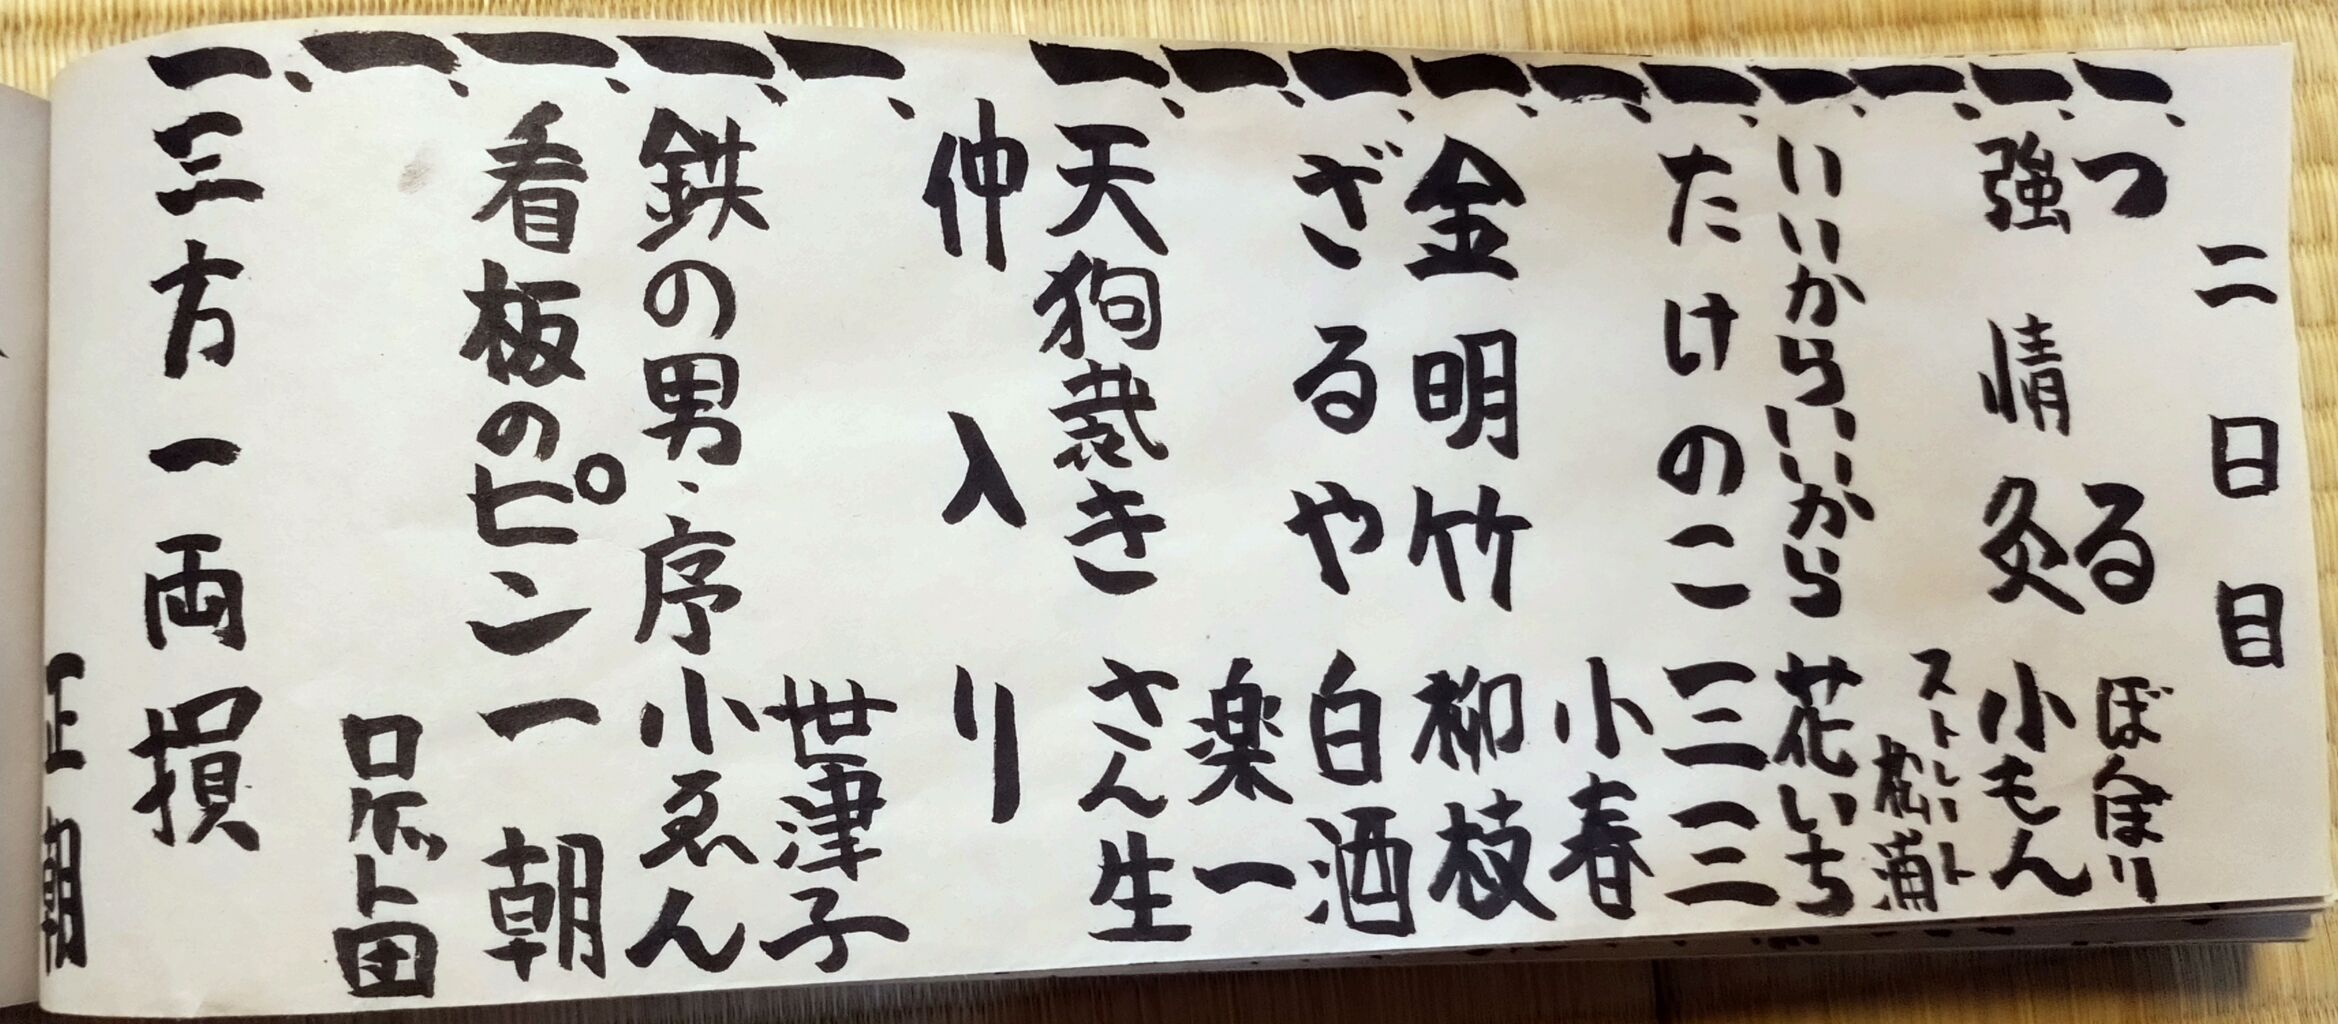 二日目
一、つる ぽん保り
一、強情灸 小もん
一、ストレート松浦
一、いいからいいから 花いち
一、たけのこ 三三
一、小春
一、金明竹 柳枝
一、ざるや 白酒
一、楽一
一、天狗裁き さん生
仲入り
一、世津子
一、鉄の男・序 小ゑん
一、看板のピン 一朝
一、ロケット団
一、三方一両損
正朝